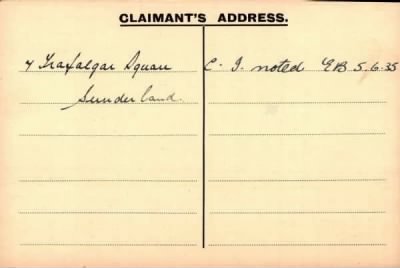 CLAIMANT'S ADDRESS.
4 Trafalgar Square
Sunderland.
C. I. noted EB 5.6.35